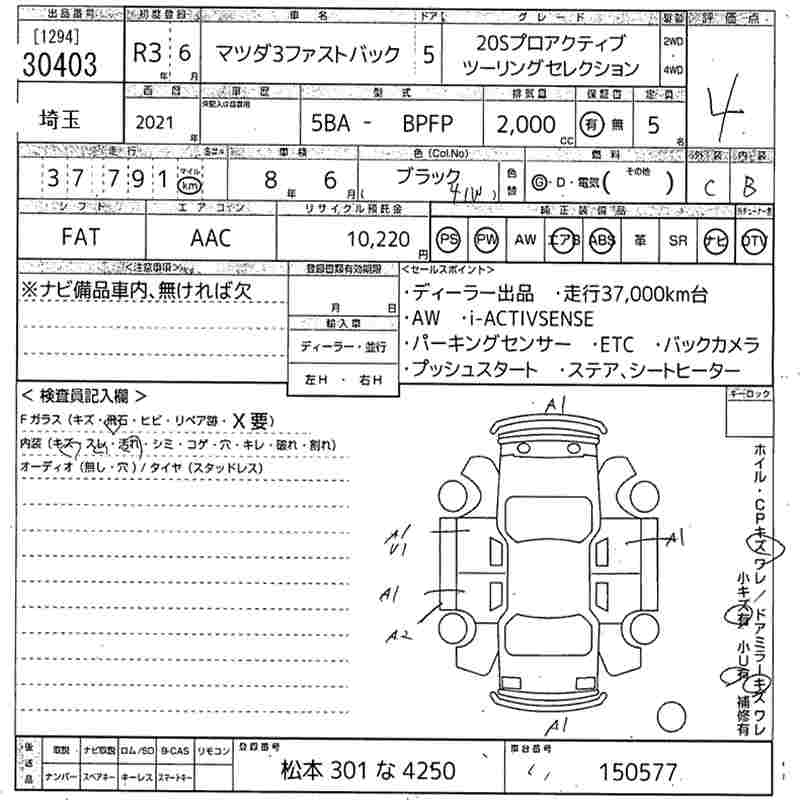 出品番号 初度登録 車名 ドア グレード 駆動 評価点
[1294]
30403 R3年 6月 マツダ3ファストバック 5 20Sプロアクティブ
ツーリングセレクション 2WD
・
4WD 4
西暦 車歴 型式 排気量 保証書 定員
埼玉 2021年 5BA - BPFP 2,000CC 有 無 5名
走行 車検 色(Col.No) 燃料 外装 内装
37791 マイル km 8年 6月 ブラック 41W 色替 G・D・電気( その他 ) C B
シフト エアコン リサイクル預託金 純正装備品
FAT AAC 10,220円 PS PW AW エアB ABS 革 SR ナビ DTV
<注意事項> 登録書類有効期限 <セールスポイント>
※ナビ備品車内、無ければ欠
月 日
輸入車
ディーラー・並行
左H ・ 右H
・ディーラー出品 ・走行37,000km台
・AW ・i-ACTIVSENSE
・パーキングセンサー ・ETC ・バックカメラ
・プッシュスタート ・ステア、シートヒーター
< 検査員記入欄 > キーロック
Fガラス(キズ・飛石・ヒビ・リペア跡・X要)
内装(キズ・スレ・汚れ・シミ・コゲ・穴・キレ・破れ・割れ)
オーディオ(無し・穴)/タイヤ(スタッドレス)
A1
A1
U1
A1
A1
A2
A1
ホイル・CPキズワレ/ドアミラーキズワレ
小キズ有 小U有 補修有
後送品 取説 ナビ取説 ロム/SD B-CAS リモコン 登録番号 車台番号
ナンバー スペアキー キーレス スマートキー 松本 301 な 4250 150577